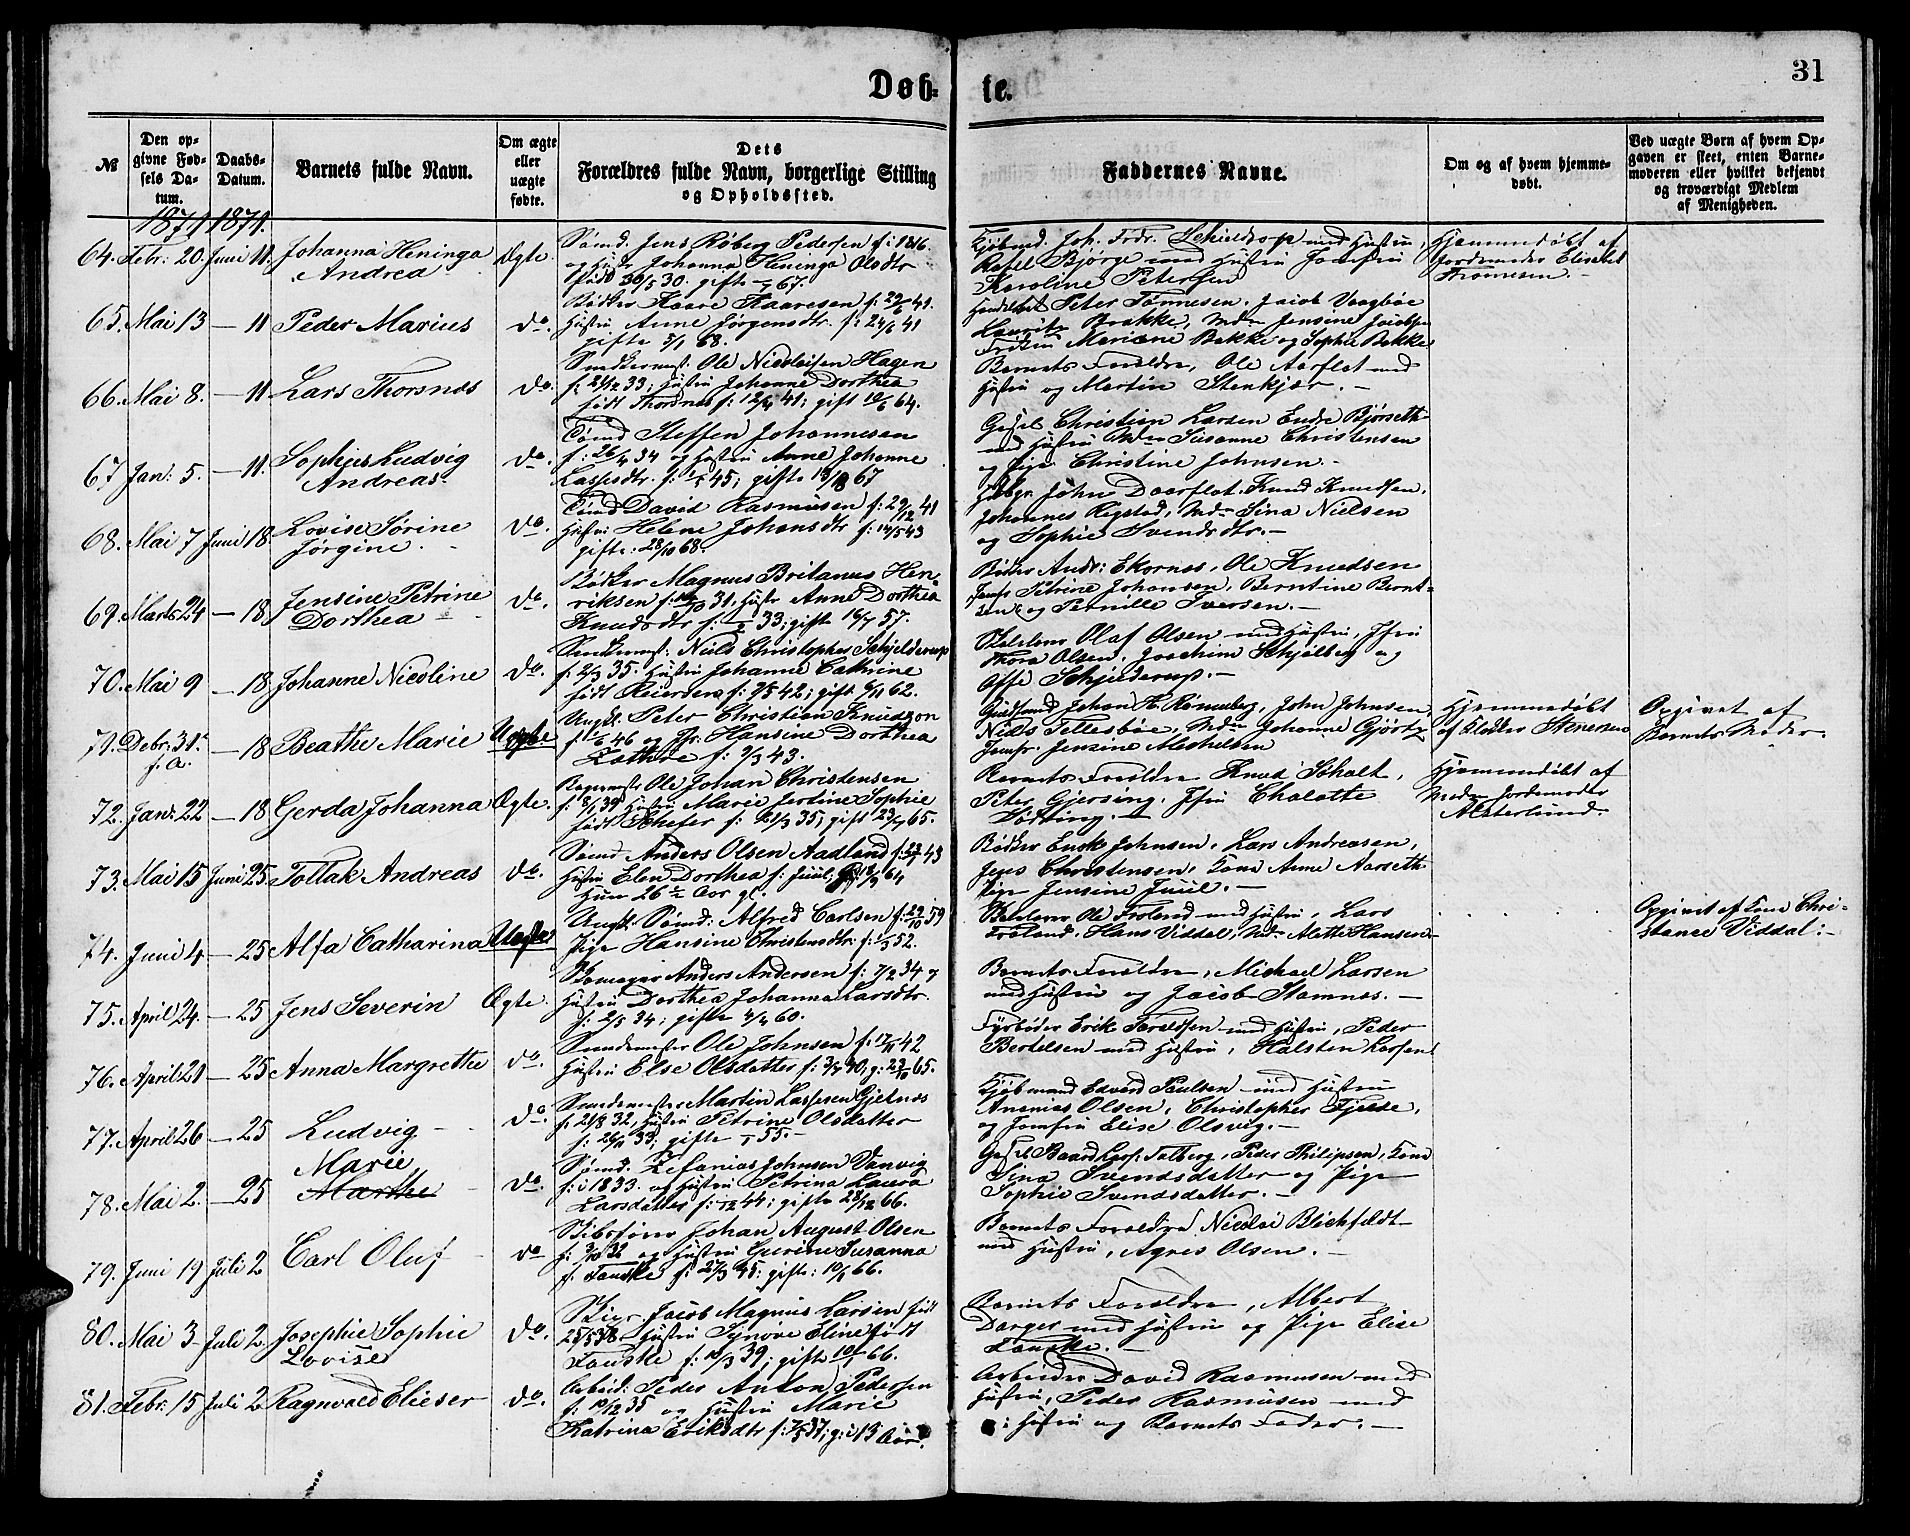 Døb-
te.
31
№
Den op-
givne Fød-
sels Da-
tum.
Daabs-
Datum.
Barnets fulde Navn.
Om ægte
eller
uægte
fødte.
Dets
Forældres fulde Navn, borgerlige Stilling
og Opholdssted.
Faddernes Navne.
Om og af hvem hjemme-
døbt.
Ved uægte Børn af hvem Op-
gaven er skeet, enten Barne-
moderen eller hvilket bekjendt
og troværdigt Medlem
af Menigheden.
1871 1871.
64. Febr: 20. Juni 11. Johanna Heninga
Andrea
Ægte.
Sømd. Jens Roberg Pedersen f: i 1816
og Hustr Johanna Heninga Olsdtr
født 30/5 30. gifte 67.
Kjøbmd. Joh. Frdr. Schieldrop med Hustru,
Bjørge med Hustru Jomfru
Karoline Petersen
Hjemmedøbt af
Jordemoder Elisabet
Thomesen.
65. Mai 13 — 11 Peder Marius
do.
Bødker Kaare Kaaresen
Hustru Anne Jørgensdtr.
gifte 3/1 68.
Peter Tønnesen, Jacob Vaagbøe
Lauritz Brakke, Mdm Jensine Jacobsen
Frøken Mariane Bakke og Sophie Bakke
66. Mai 8. — 11 Lars Thorsnes
do.
Snedkermst: Ole Nicolaisen Hagen
Hustru Johanne Dorthea
født Thorsnes f: 12/4 41; gift 10/6 64.
Barnets Forældre, Ole Aarflot med
Hustru og Martin Stenkjær. —
67 Jan: 5. — 11. Sophus Ludvig
Andreas
do.
Tømd Steffen Johannesen
f: 26/4 34 og Hustru Anne Johanne
Lassesdtr. 45; gifte 67
Gesel Christian Larsen Endre Bjørseth
med Hustru Mdm Susanne Christensen
og Pige Christine Johnsen. —
68. Mai 7 Juni 18 Lovise Sørine
Jørgine.
do.
Tømd David Rasmusen f: 29/12 41
Hustru Helene Johansdtr f: 14/5 43
gifte: 28/10 68.
John Daarflot. Knud Knudsen,
Johannes Rystad, Mdm Sina Nielsen
og Sophie Svendsdtr. —
69. Marts 24 — 18 Jensine Petrine
Dorthea
do.
Bødker Magnus Britanus Hen-
riksen 31. Hustr Anne Dorthea
Knudsdtr 33; gift 16/7 57.
Bødker Andr: Ekornes, Ole Knudsen
Jomfr Petrine Johansen, Berntine Bernt-
sen og Pernille Iversen. —
70. Mai 9 — 18 Johanne Nicoline
do.
Snedkermst: Niels Christopher Schjelderup
f: 2/3 35. Hustru Johanne Cathrine
født Reiersen f: 2/5 42; gift 62.
Olaf Olsen med Hustru, Jfru
Thora Olsen, Joachim Schjølberg og
Schjelderup. —
71. Debr: 31.
f. A.
— 18 Beathe Marie Uægte
Ungkl. Peter Christian Knudzon
46 og Pr. Hansine Dorthea
43.
Johan H. Rønneberg, John Johnsen
Niels Tellesbøe, Mdm Johanne Gjørtz
Jomfr. Jensine
Hjemmedøbt
af Kladder Stenersen
Opgivet af
Barnets Moder.
72. Jan: 22 — 18 Gerda Johanna Ægte.
Ole Johan Christensen
f: 8/1 39 Hustru Marie Jertine Sophie
født Schefer f: 35; gift 23/4 65.
Barnets Forældre Knud Scholt,
Peter Gjersing, Jfru Chalotte
Hjemmedøbt af
Mdm Jordemoder
Alsterlund.
73. Mai 15 Juni 25 Tollak Andreas
do.
Sømd Anders Olsen Aadland 43
Hustru Elen Dorthea f. Juul; 64
Hun 26 ½ Aar gl.
Bødker Enok Johnsen, Lars Andreasen,
Jens Christensen, Kone Anne Aarseth
Pige Jensine Juul. —
74. Juni 4 — 25 Alfa Catharina Uægte
Ungk. Sømd: Alfred Carlsen f: 29/10 59
Pige Hansine Christensdtr: 52.
Ole Froland med Hustru, Lars
Froland, Hans Viddal, Mdm Alette Hansen —
Opgivet af Kone Chri-
stance Viddal: —
75. April 24. — 25 Jens Severin Ægte.
Skomager Anders Andersen f: 7/2 34 og
Hustru Dorthea Johanna Larsdtr.
f: 2/5 34; gifte 4/4 60.
Barnets Forældre, Michael Larsen
med Hustru og Jacob Stamnes. —
76. April 21 — 25 Anna Margrethe
do.
Ole Johnsen f: 17/11 42
Hustru Else Olsdatter 40; g: 23/10 65.
Fyrbøder Erik Toraldsen med Hustru, Peder
Bertelsen med Hustru, Halsten Larsen
77. April 26 — 25 Ludvig
do.
Martin Lassesen Gjelnes
f: 21/8 32, Hustru Petrine Olsdatter
33; gifte 55. —
Kjøbmand Edvard Paulsen med Hustru
Ananias Olsen, Christopher Fjelde,
og Jomfru Elise Olsvig. —
78. Mai 2. — 25 Marie
Marthe
do.
Sømd. Zefanias Johnsen Vanvig
f: i 1833. og Hustru Petrina Laura
Larsdatter f: 44; gifte 28/12 66.
Gesel Baard Larss. Talberg, Peder Philipsen, Kone
Sina Svendsdatter og Pige
Sophie Svendsdatter. —
79. Juni 19 Juli 2 Carl Oluf
do
Skibsfører Johan August Olsen
f: 32 og Hustru Gurine Susanna
f. Fauske f: 27/9 45: gifte: 10/1 66.
Barnets Forældre Nicolai Blichfeldt
med Hustru, Agnes Olsen. —
80. Mai 3 Juli 2. Josephie Sophie
Lovise
do.
Jacob Magnus Larsen født
25/5 38 Hustru Synøve Eline født
Fauske f: 10/3 39; gifte 10/1 66.
Barnets Forældre, Albert
Dorger med Hustru og Pige Elise
Fauske. —
81. Febr: 15 Juli 2 Ragnvald Elieser
do
Arbeid: Peder Anton Pedersen
f. 10/12 35 og Hustru Marie
Katrina Eriksdtr f: 7/5 37; g: i 13 Aar.
Arbeider David Rasmusen med
Hustru, Peder Rasmusen med
Hustru og Barnets Fader. —